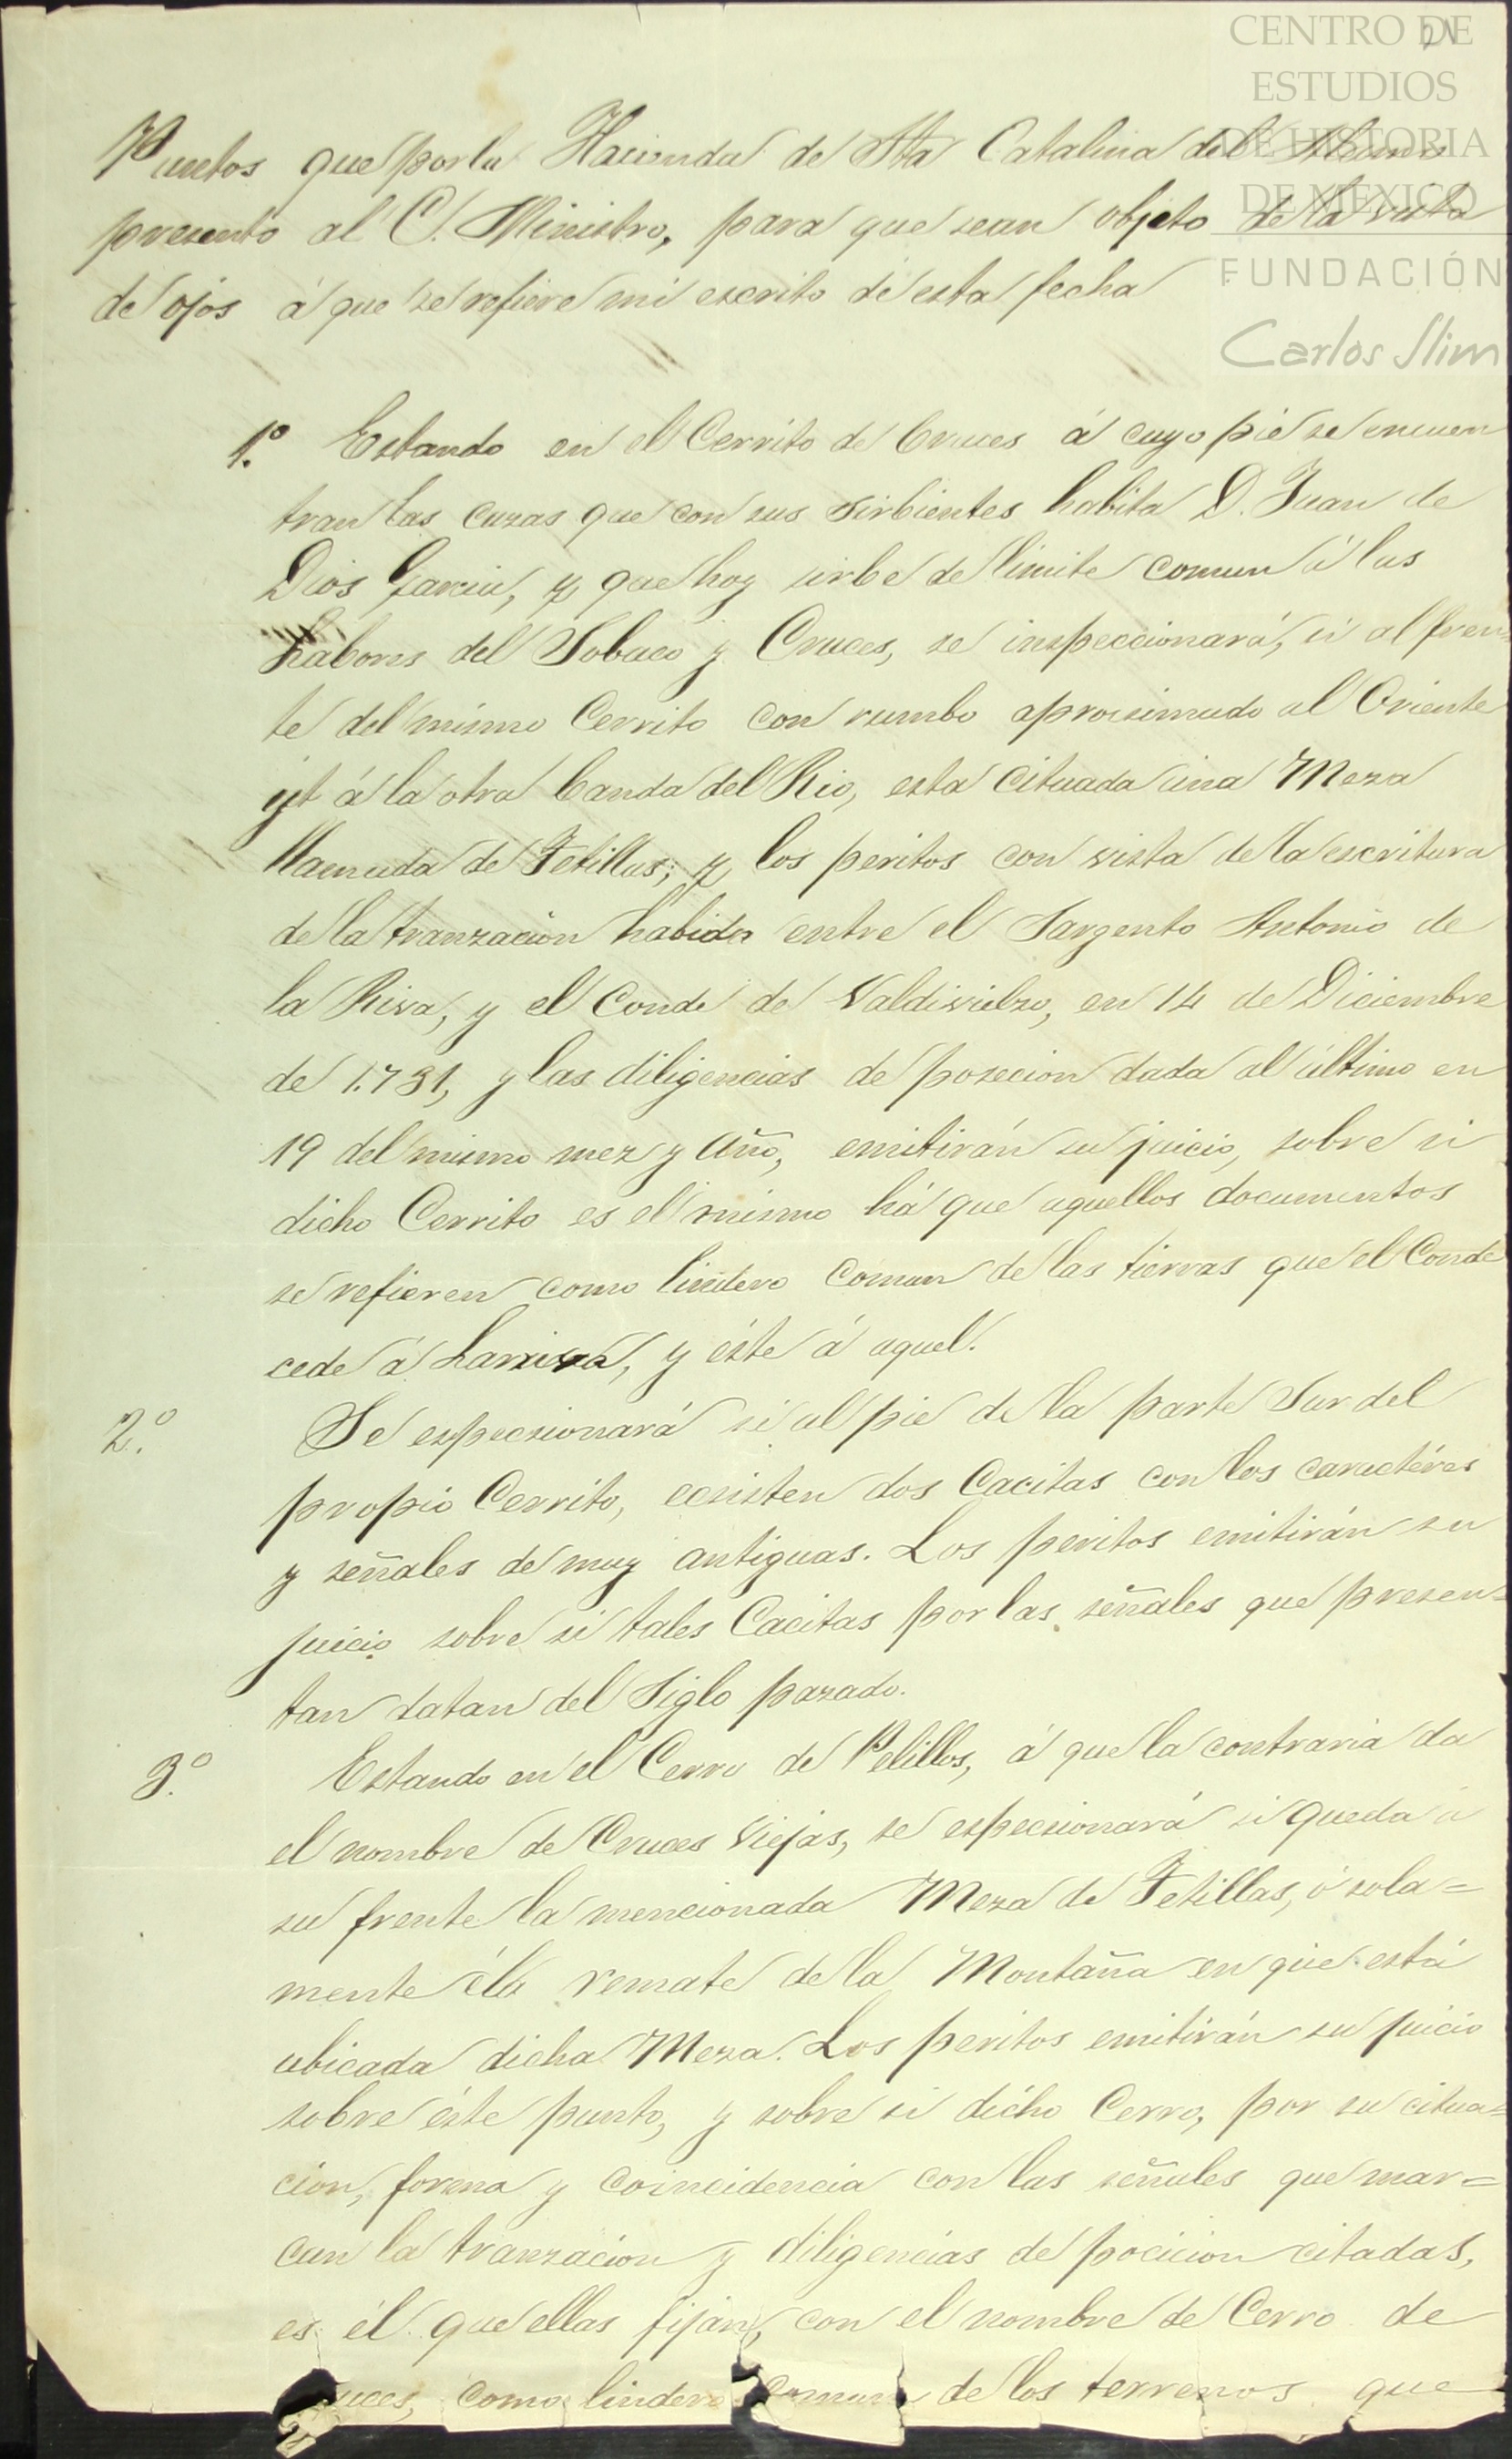 CENTRO DE
ESTUDIOS
DE HISTORIA
DE MÉXICO
FUNDACIÓN
Carlos Slim
Puntos que por la Hacienda de Sta Catalina del Alamo
presento al C. Ministro, para que sean objeto de la vista
de ojos á que se refiere mi escrito de esta fecha
1.º Estando en el Cerrito de Cruces á cuyo pié se encuen
tran las cazas que con sus sirbientes habita D. Juan de
Dios Garcia, y que hoy sirbe de limite comun á las
Labores del Tobaco y Cruces, se inspeccionará, si al fren
te del mismo Cerrito con rumbo aprocsimado al Oriente
y á la otra banda del Rio, esta cituada una Meza
llamada de Tetillas; y los peritos con vista de la escritura
de la tranzacion habida entre el Sargento Antonio de
la Riva, y el Conde de Valdivielzo, en 14 de Diciembre
de 1.731, y las diligencias de pozecion dada al último en
19 del mismo mez y año, emitirán su juicio, sobre si
dicho Cerrito es el mismo há que aquellos documentos
se refieren como lindero comun de las tierras que el Conde
cede á Larriva, y éste á aquel.
2.º Se especcionará si al pié de la parte Sur del
propio Cerrito, ecsisten dos Cacitas con los caractéres
y señales de muy antiguas. Los peritos emitirán su
juicio sobre si tales Cacitas por las señales que presen=
tan datan del Siglo pazado.
3.º Estando en el Cerro de Pelillos, á que la contraria da
el nombre de Cruces Viejas, se especcionará si queda á
su frente la mencionada Meza de Tetillas, ó sola=
mente él remate de la Montaña en que está
ubicada dicha Meza. Los peritos emitirán su juicio
sobre éste punto, y sobre si dicho Cerro, por su citua=
cion, forma y coincidencia con las señales que mar=
can la tranzacion y diligencias de pocicion citadas,
es él que ellas fijan, con el nombre de Cerro de
uces, como lindero comun de los terrenos que